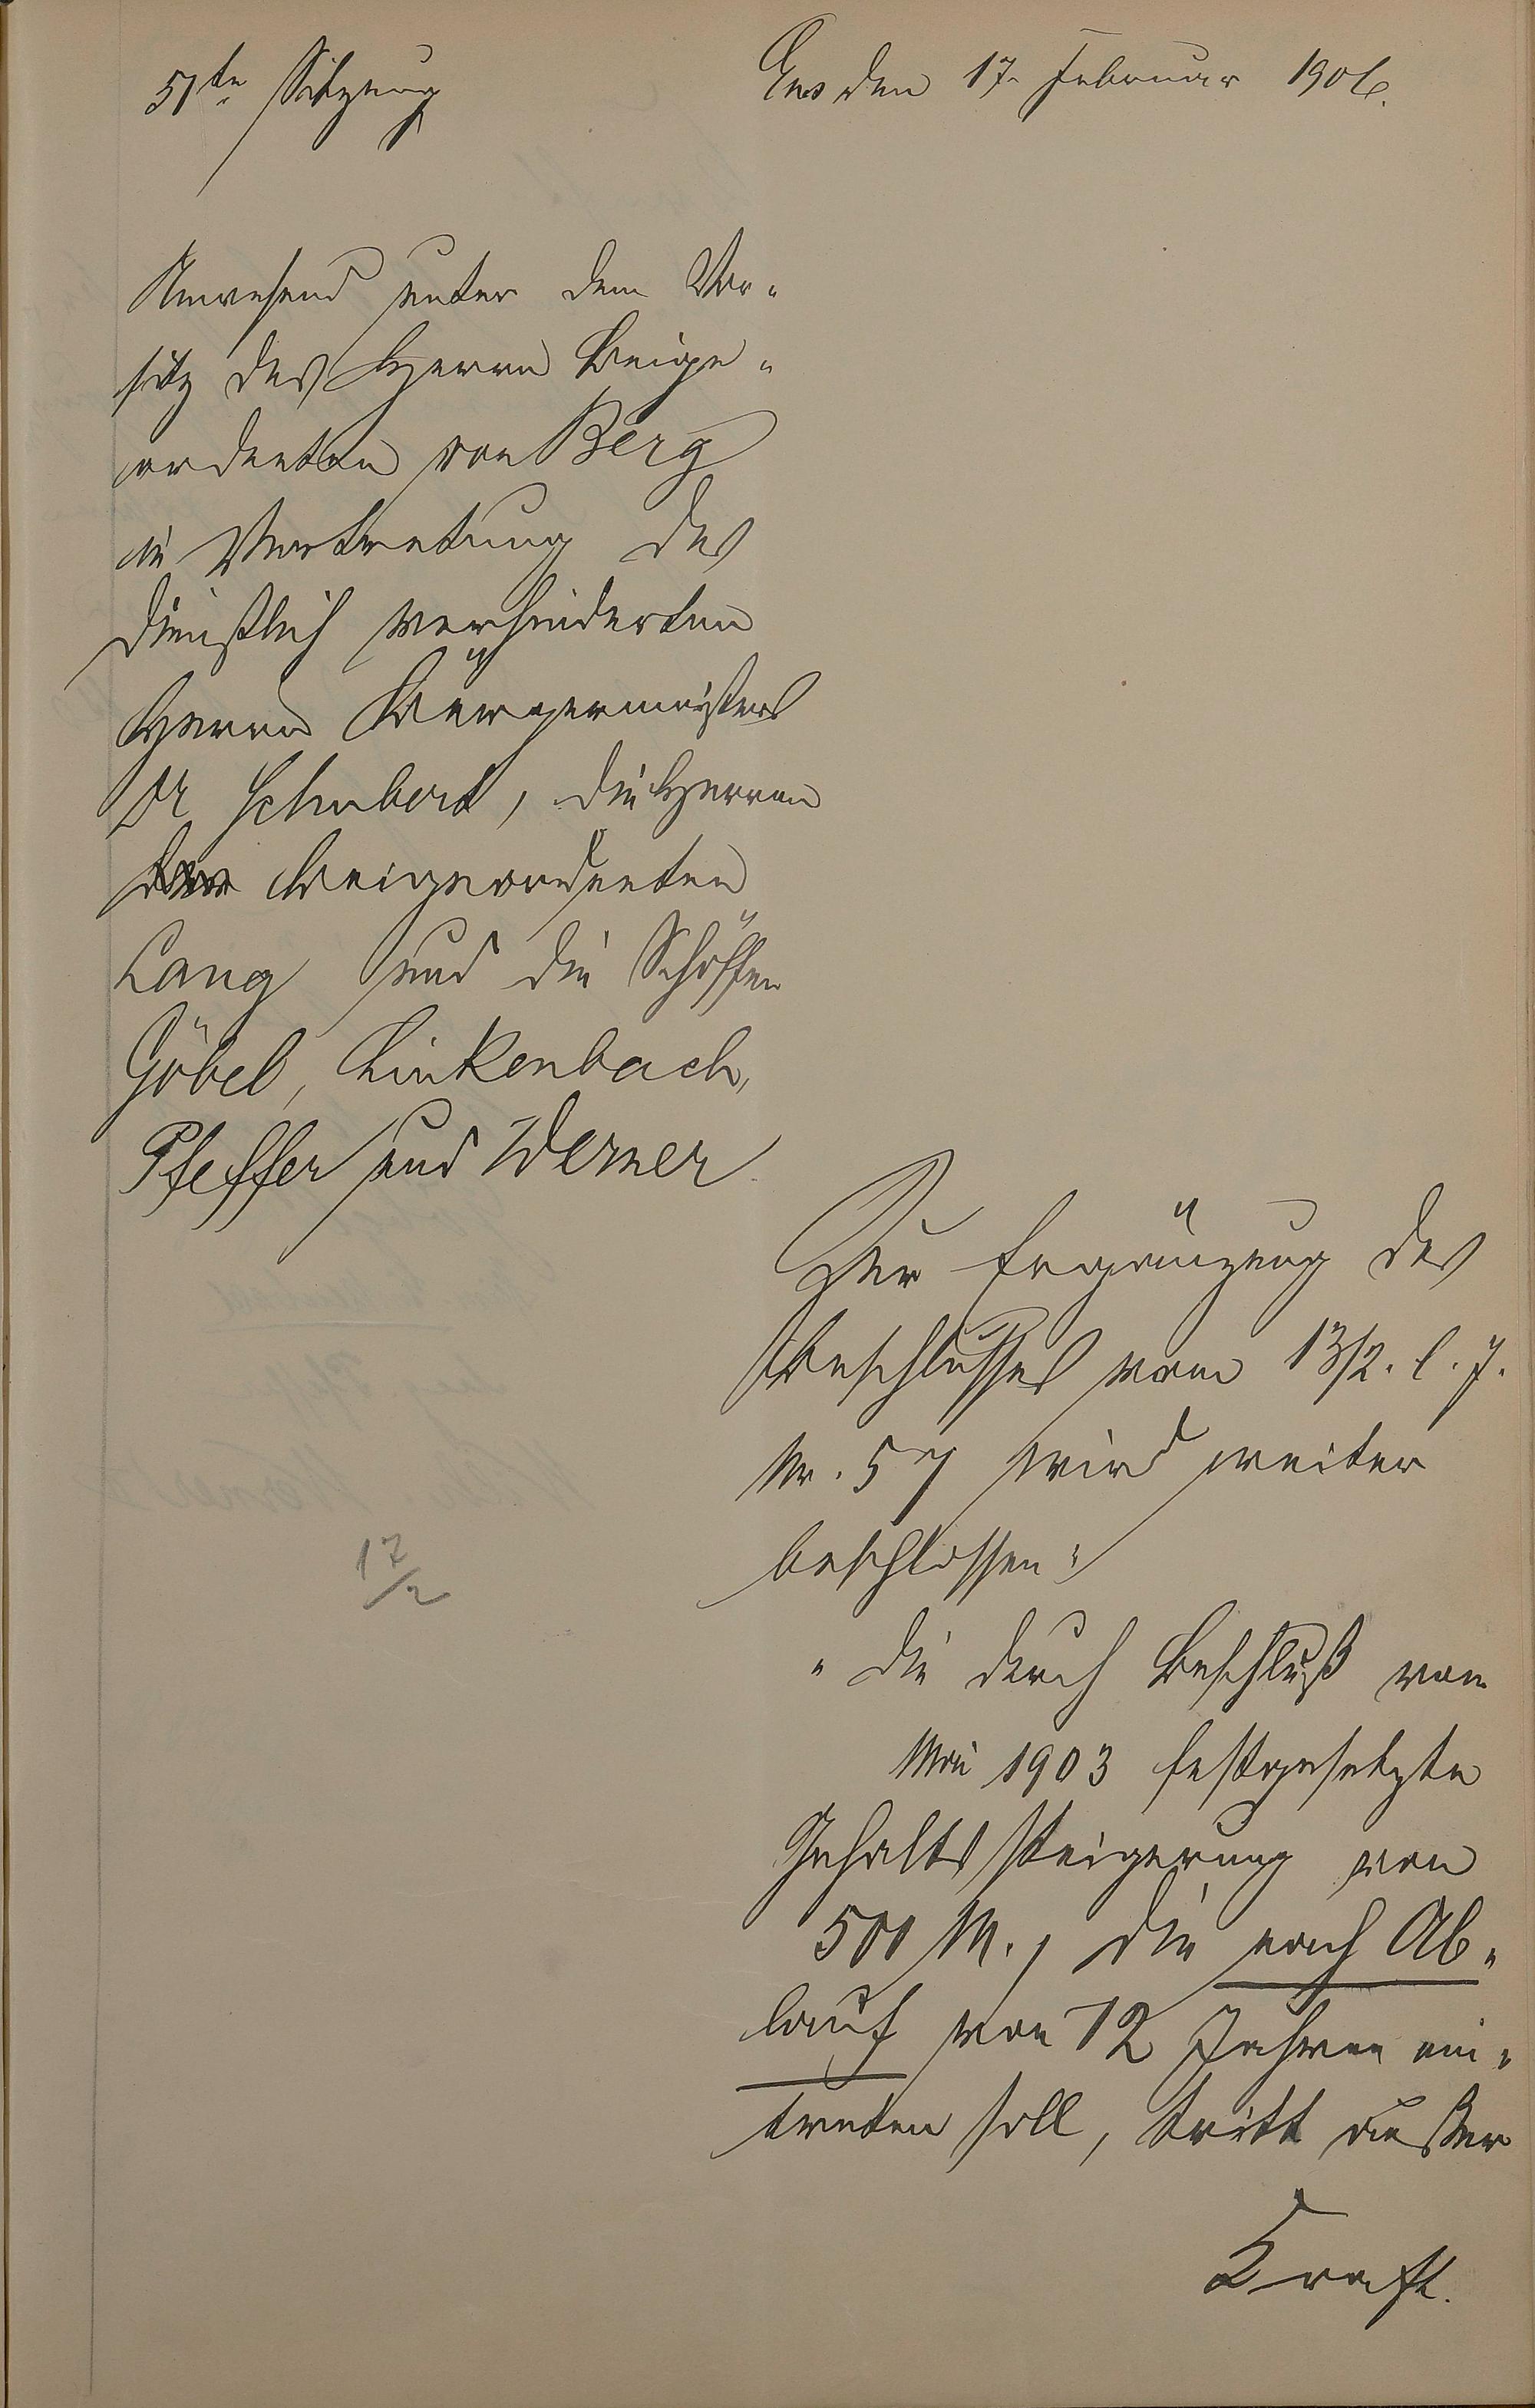 51te Sitzung
Ems den 17. Februar 1906.
Anwesend unter dem Vor-
sitz des Herrn Beige-
ordneten von Berg
in Vertretung des
dienstlich verhinderten
Herrn Bürgermeisters
Dr Schubert, die Herren
Beigeordneten
Lang und die Schöffen
Göbel, Linkenbach,
Pfeffer und Werner
Zur Ergänzung des
Beschlusses vom 13/2. l. J.
Nr. 57 wird weiter
beschlossen:
17/2
"Die durch Beschluß vom
Mai 1903 festgesetzte
Gehaltssteigerung von
500 M., die nach Ab-
lauf von 12 Jahren ein-
treten soll, tritt außer
Kraft.